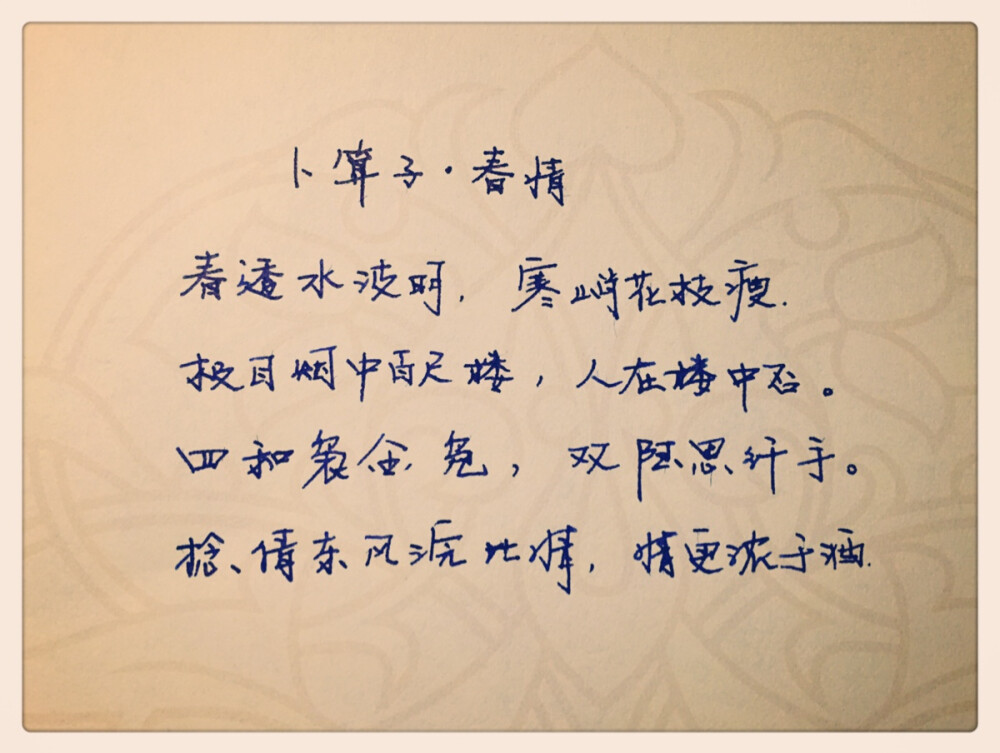 卜算子·春情
春透水波明，寒峭花枝瘦.
极目烟中百尺楼，人在楼中否。
四和袅金凫，双陆思纤手。
捻倩东风浣此情，情更浓于酒.